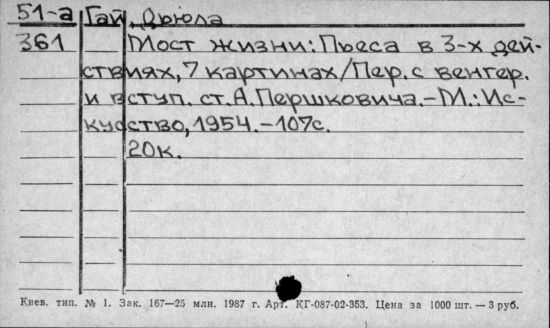 51-а Гай, Дьюла
361 Мост жизни: Пьеса в 3-х дей-
ствиях, 7 картинах/Пер. с венгер.
и вступ. ст. А. Першковича.-М.: Ис-
кусство, 1954.-107с.
20к.
Киев. тип. № 1. Зак. 167—25 млн. 1987 г. Арт. КГ-087-02-353. Цена за 1000 шт. — 3 руб.